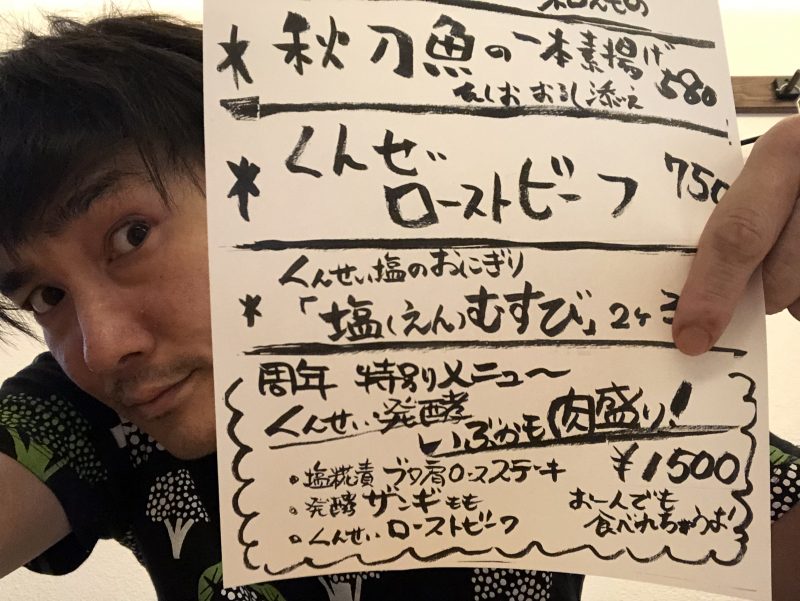 ★ 秋刀魚の一本素揚げ
もしお おろし添え 580
★ くんせい
ローストビーフ 750
くんせい塩のおにぎり
★ 「塩(えん)むすび」2ヶ 3
周年 特別メニュー
くんせい・発酵
いぶかも肉盛り!
• 塩糀漬 ブタ肩ロースステーキ ¥1500
• 発酵 ザンギもも お一人でも
• くんせい ローストビーフ 食べれちゃうよ!